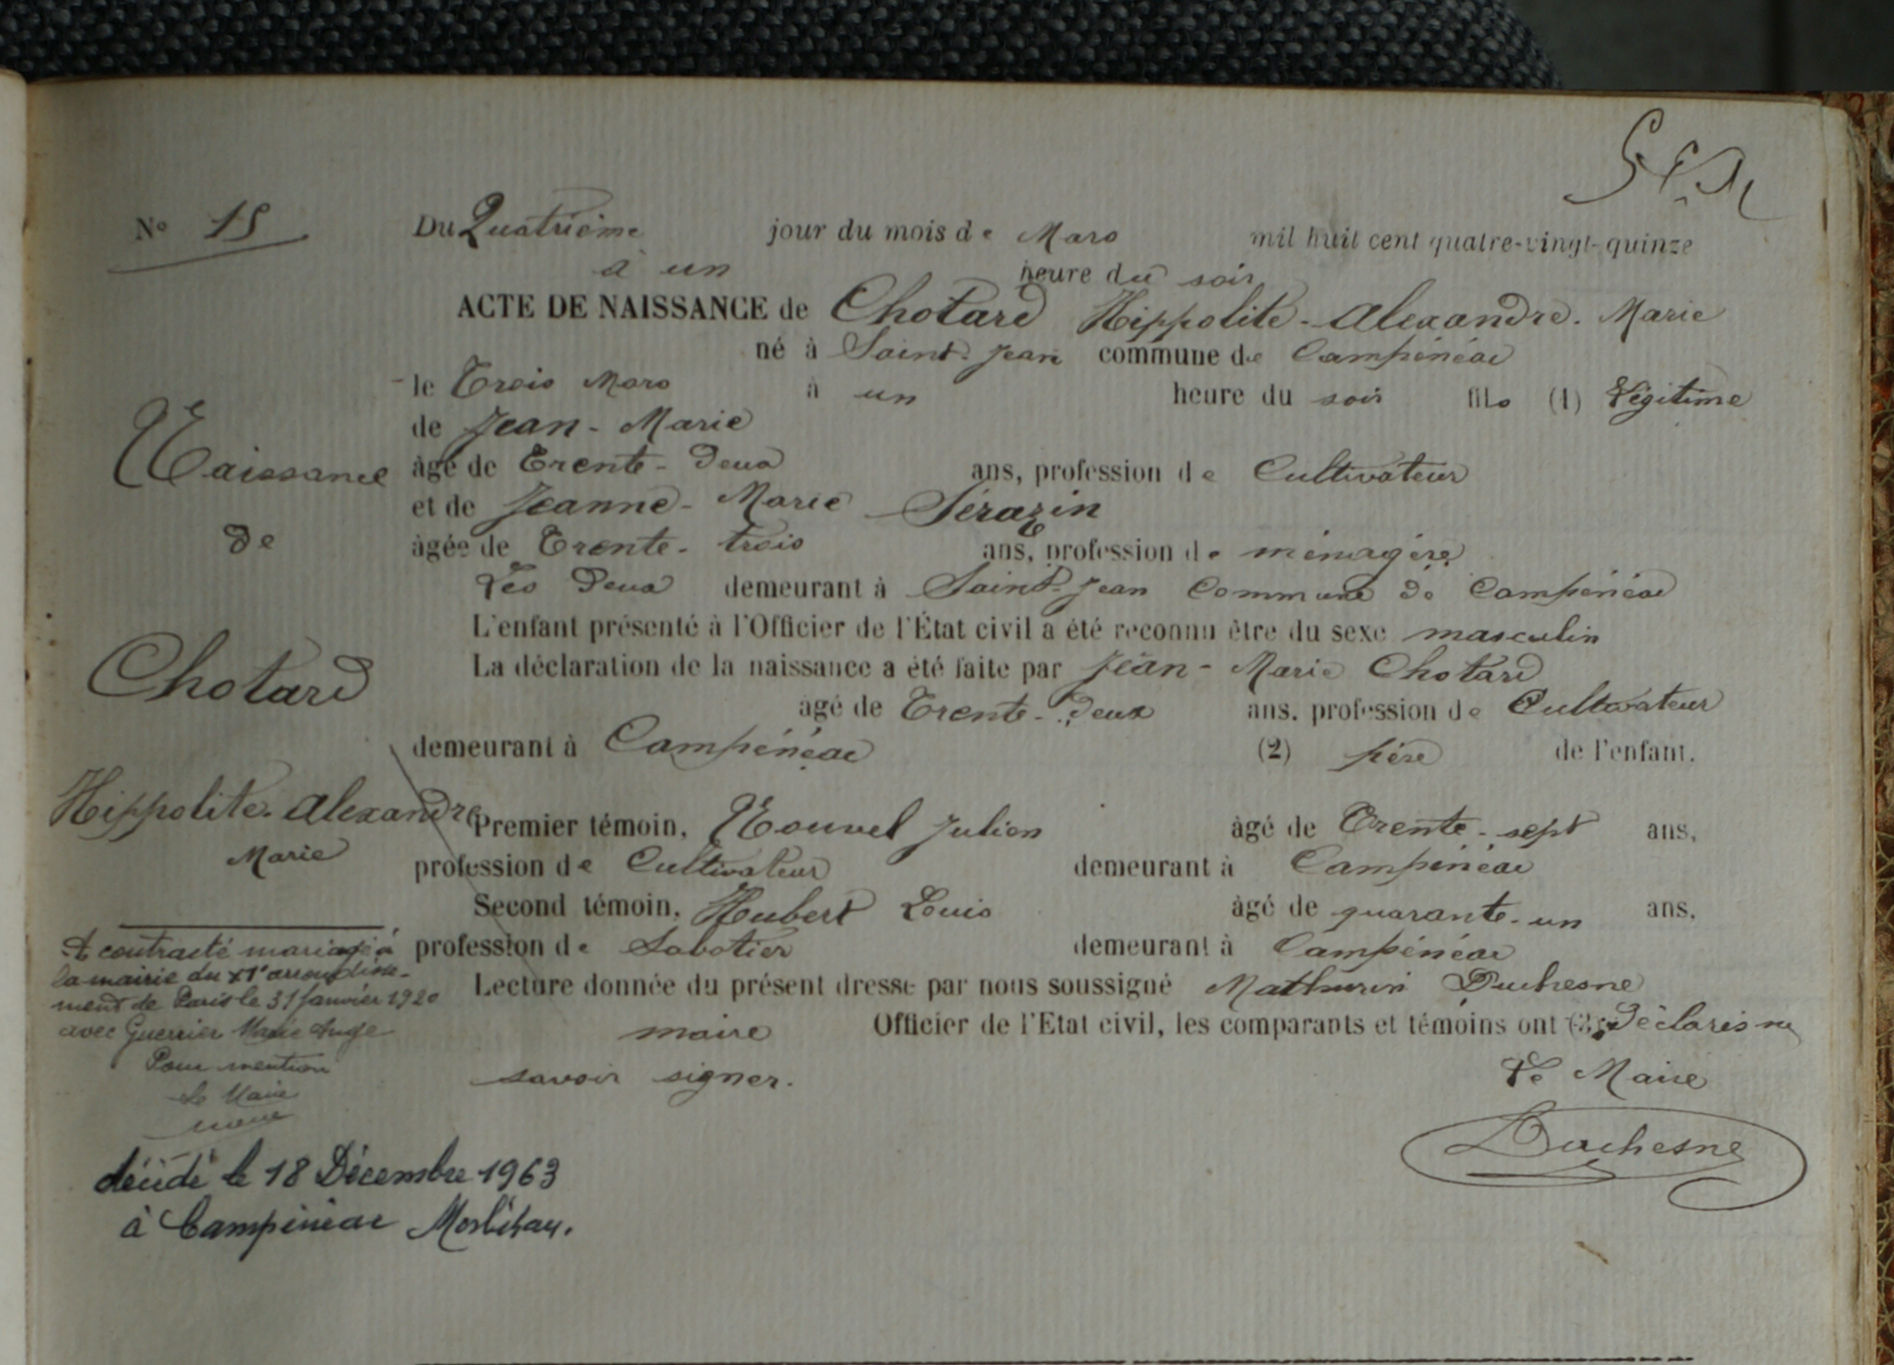 Nº 15
Du Quatrième jour du mois de Mars mil huit cent quatre-vingt-quinze
à un heure du soir
ACTE DE NAISSANCE de Chotard Hippolite-Alexandre. Marie
né à Saint-Jean commune de Campénéac
le Trois Mars à un heure du soir fils (1) Légitime
de Jean-Marie
âgé de Trente-deux ans, profession de Cultivateur
et de Jeanne-Marie Sérazin
âgée de Trente-trois ans, profession de ménagère
Les Deux demeurant à Saint-Jean Commune de Campénéac
L'enfant présenté à l'Officier de l'État civil a été reconnu être du sexe masculin
La déclaration de la naissance a été faite par Jean-Marie Chotard
âgé de Trente-deux ans, profession de Cultivateur
demeurant à Campénéac (2) père de l'enfant.
Premier témoin, Nouvel Julien âgé de Trente-sept ans,
profession de Cultivateur demeurant à Campénéac
Second témoin, Hubert Louis âgé de quarante-un ans,
profession de Sabotier demeurant à Campénéac
Lecture donnée du présent dressé par nous soussigné Mathurin Duchesne
maire Officier de l'Etat civil, les comparants et témoins ont (3) Déclarés ne
savoir signer.
Le Maire
Duchesne
Naissance
de
Chotard
Hippolite-Alexandre
Marie
A contracté mariage à
la mairie du XIe arrondisse-
ment de Paris le 31 Janvier 1920
avec Guerrier Marie Ange
Pour mention
Le Maire
décédé le 18 Décembre 1963
à Campénéac Morbihan.